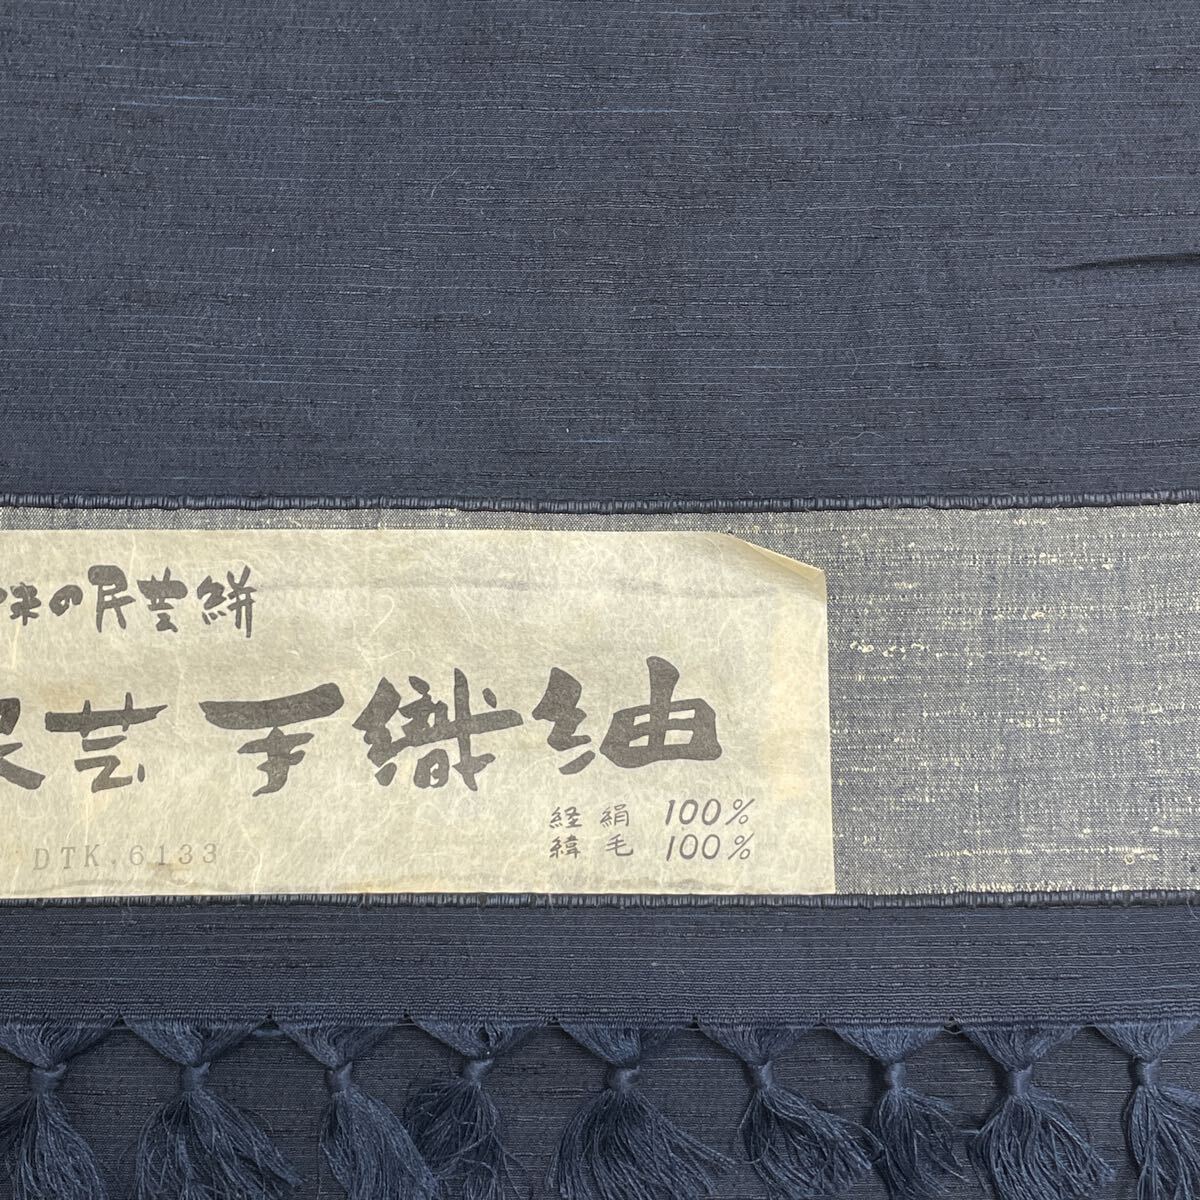 の民芸絣
民芸手織紬
経 絹 100%
緯 毛 100%
DTK.6133